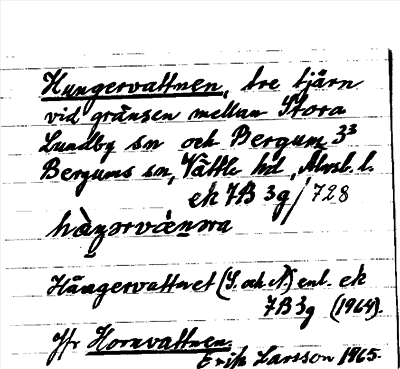 Hungervattnen, tre tjärn
vid gränsen mellan Stora
Lundby sn och Bergum 3³
Bergums sn, Vättle hd, Älvsb. l.
ek 7B 3g/728
hàŋərvàṇəna
Hängervattnet (S. och N.) enl. ek
7B3g (1964).
Jfr Hornvattnen.
Erik Larsson 1965.